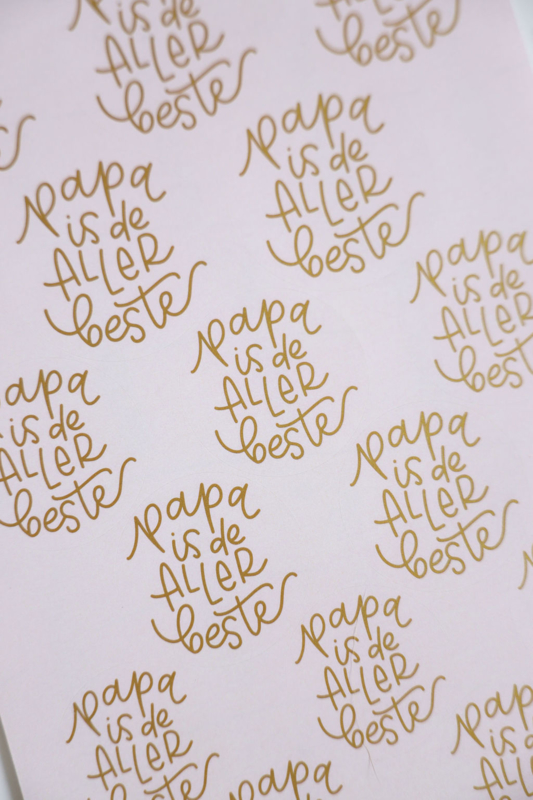 Papa
is de
ALLER
beste
ALLER
beste
Papa
is de
ALLER
beste
Papa
is de
ALLER
beste
Papa
is de
ALLER
Papa
is de
ALLER
beste
apa
is de
ALLER
beste
Papa
is de
ALLER
beste
Papa
is de
ALLER
beste
Papa
is de
ALLER
beste
Papa
is de
ALLER
beste
Papa